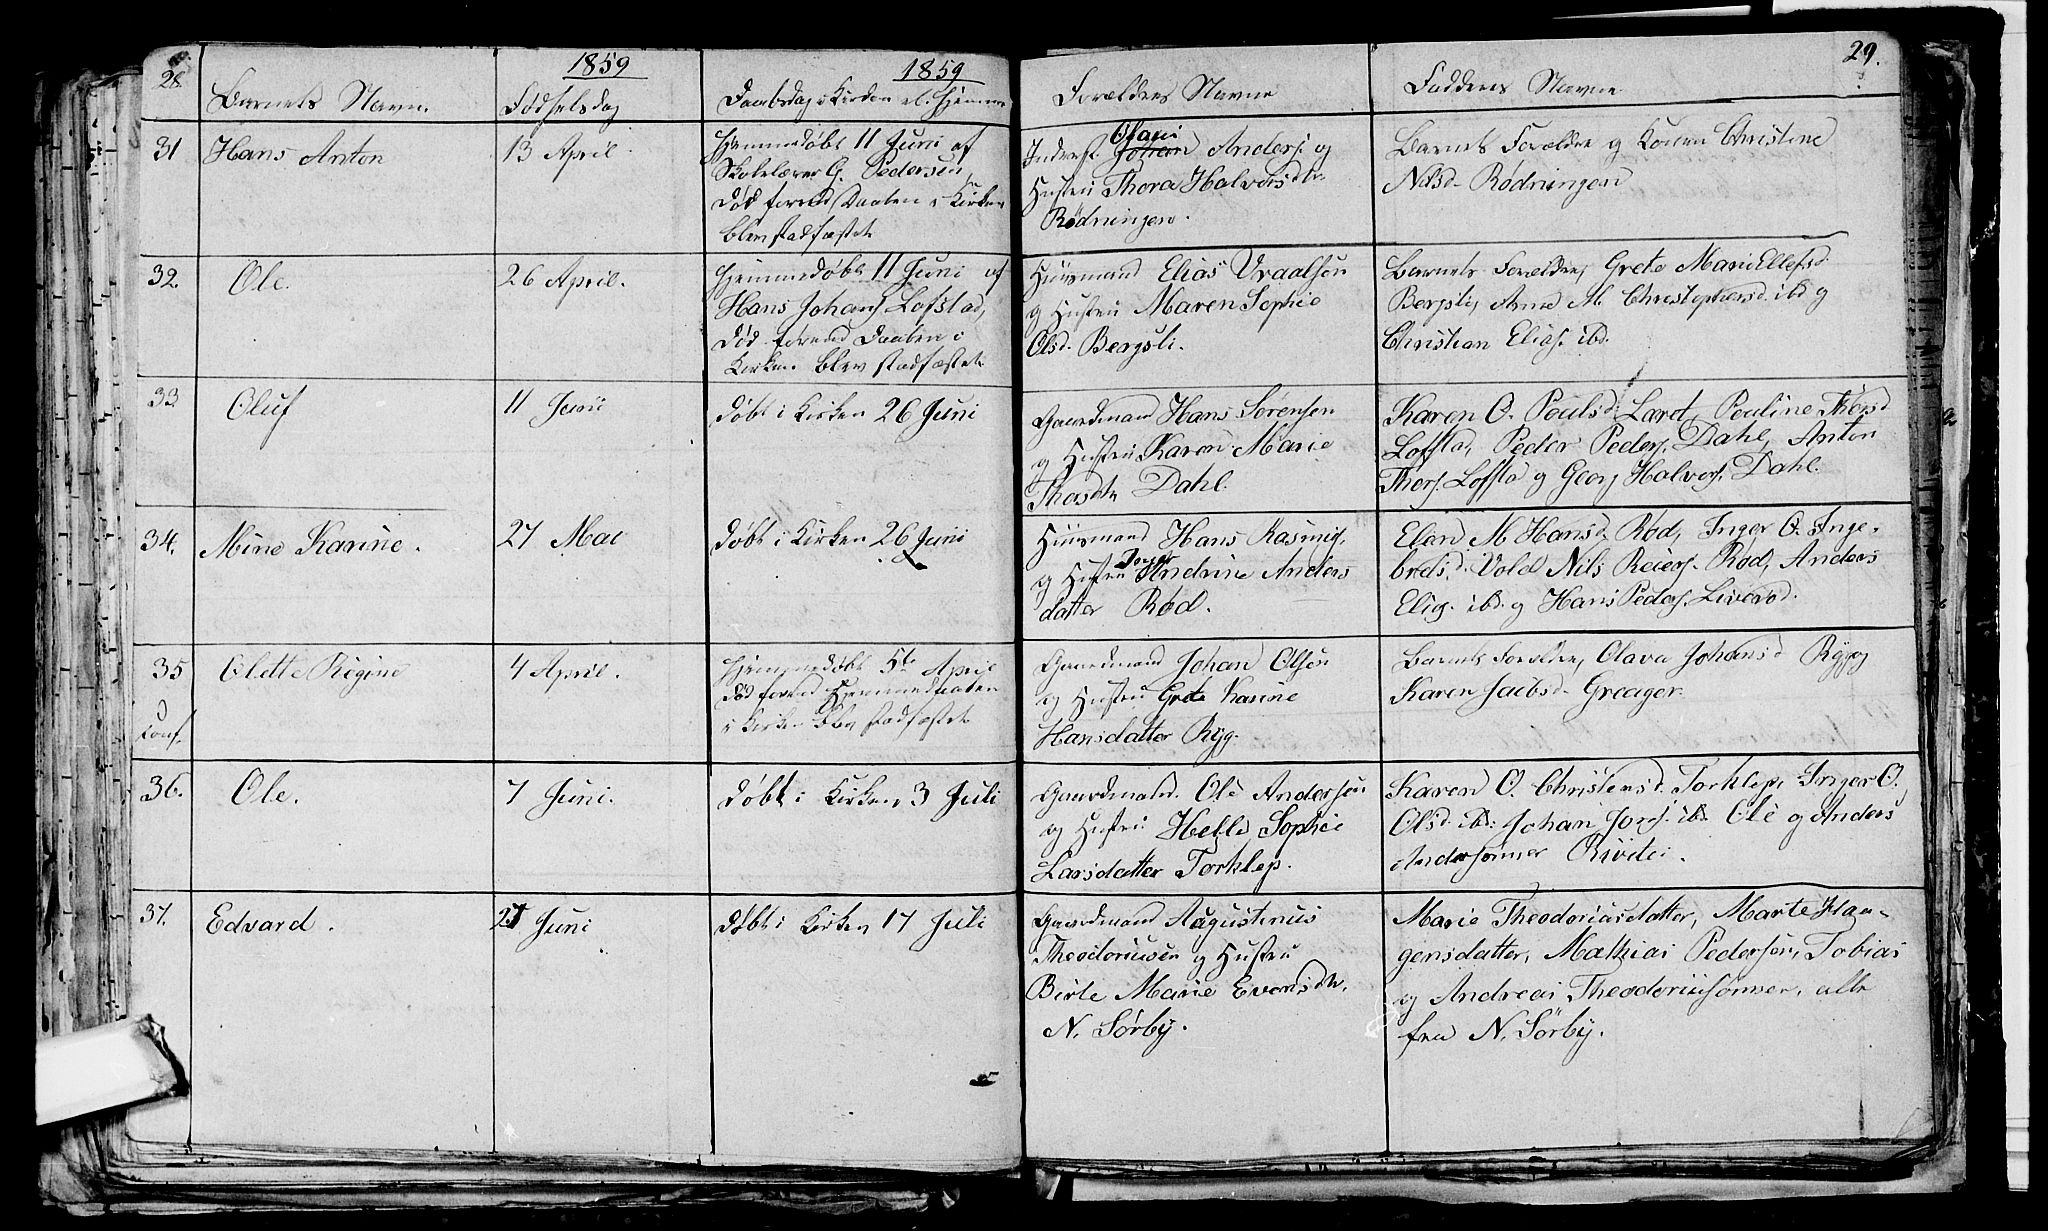 28.
1859
1859
29.
Barnets Navn.
Fødselsdag
Daabsdag i Kirken el. Hjemme
Forældres Navne
Fadderes Navne
31
Hans Anton
13 April.
Hjemmedøbt 11 Juni af
Skolelærer G. Pedersen,
død forend Daaben i Kirken
blev stadfæstet
Inderst. Johan Olaui Anders. og
Hustru Thora Halvorsdtr
Rødningen.
Barnets Forældre og Konen Christine
Nilsd. Rødningen
32.
Ole.
26 April.
Hjemmedøbt 11 Juni af
Hans Johans. Lofstad,
død forend Daaben i
Kirken blev stadfæstet
Huusmand Elias Vraalsen
og Hustru Maren Sophie
Olsd. Bergsli.
Barnets Forældre, Grete Marie Ellefsd.
Bergsli, Anne M. Christophersd. ibd og
Christian Elias. ibd.
33
Oluf
11 Juni
døbt i Kirken 26 Juni
Gaardmand Hans Sørensen
og Hustru Karen Marie
Thorsdtr Dahl.
Karen O. Poulsd. Pauline Thorsd
Loffsta, Peder Peders. Dahl, Anton
Thors. Loffsta og Georg Halvors. Dahl.
34.
Mine Karine.
27 Mai
døbt i Kirken 26 Juni
Huusmand Hans Rasmus.
og Hustru Andrine Anders
datter Rød.
M. Hansd. Rød, Inger O. Inge-
bretsd. Vold Nils Reiers. Rød, Anders
Elias. ibd. og Hans Peders. Liverød.
35
Conf.
Olette Regine
4 April.
Hjemmedøbt 5te April
død forend Hjemmedaaben
i Kirken blev stadfæstet
Gaardmand Johan Olsen
og Hustru Grete Karine
Hansdatter Ryg.
Barnets Forældre, Olava Johansd Ryg og
Karen Jacobsd. Greager.
36.
Ole.
7 Juni.
døbt i Kirken 3 Juli
Gaardmand. Ole Andersen
og Hustru Helle Sophie
Larsdatter Torklep.
Karen O. Christensd. Torklep, Inger O.
Olsd. ibd: Johan Jons. ibd Ole og Anders
Andersønner
37.
Edvard.
27 Juni
døbt i Kirken 17 Juli
Gaardmand Augustinus
Theodoriusen og Hustru
Birte Marie Evensdtr.
N. Sørby.
Marie Theodoriusdatter, Marte Haa-
gensdatter, Mathias Pedersen, Tobias
og Andreas Theodoriussønner, alle
fra N. Sørby.